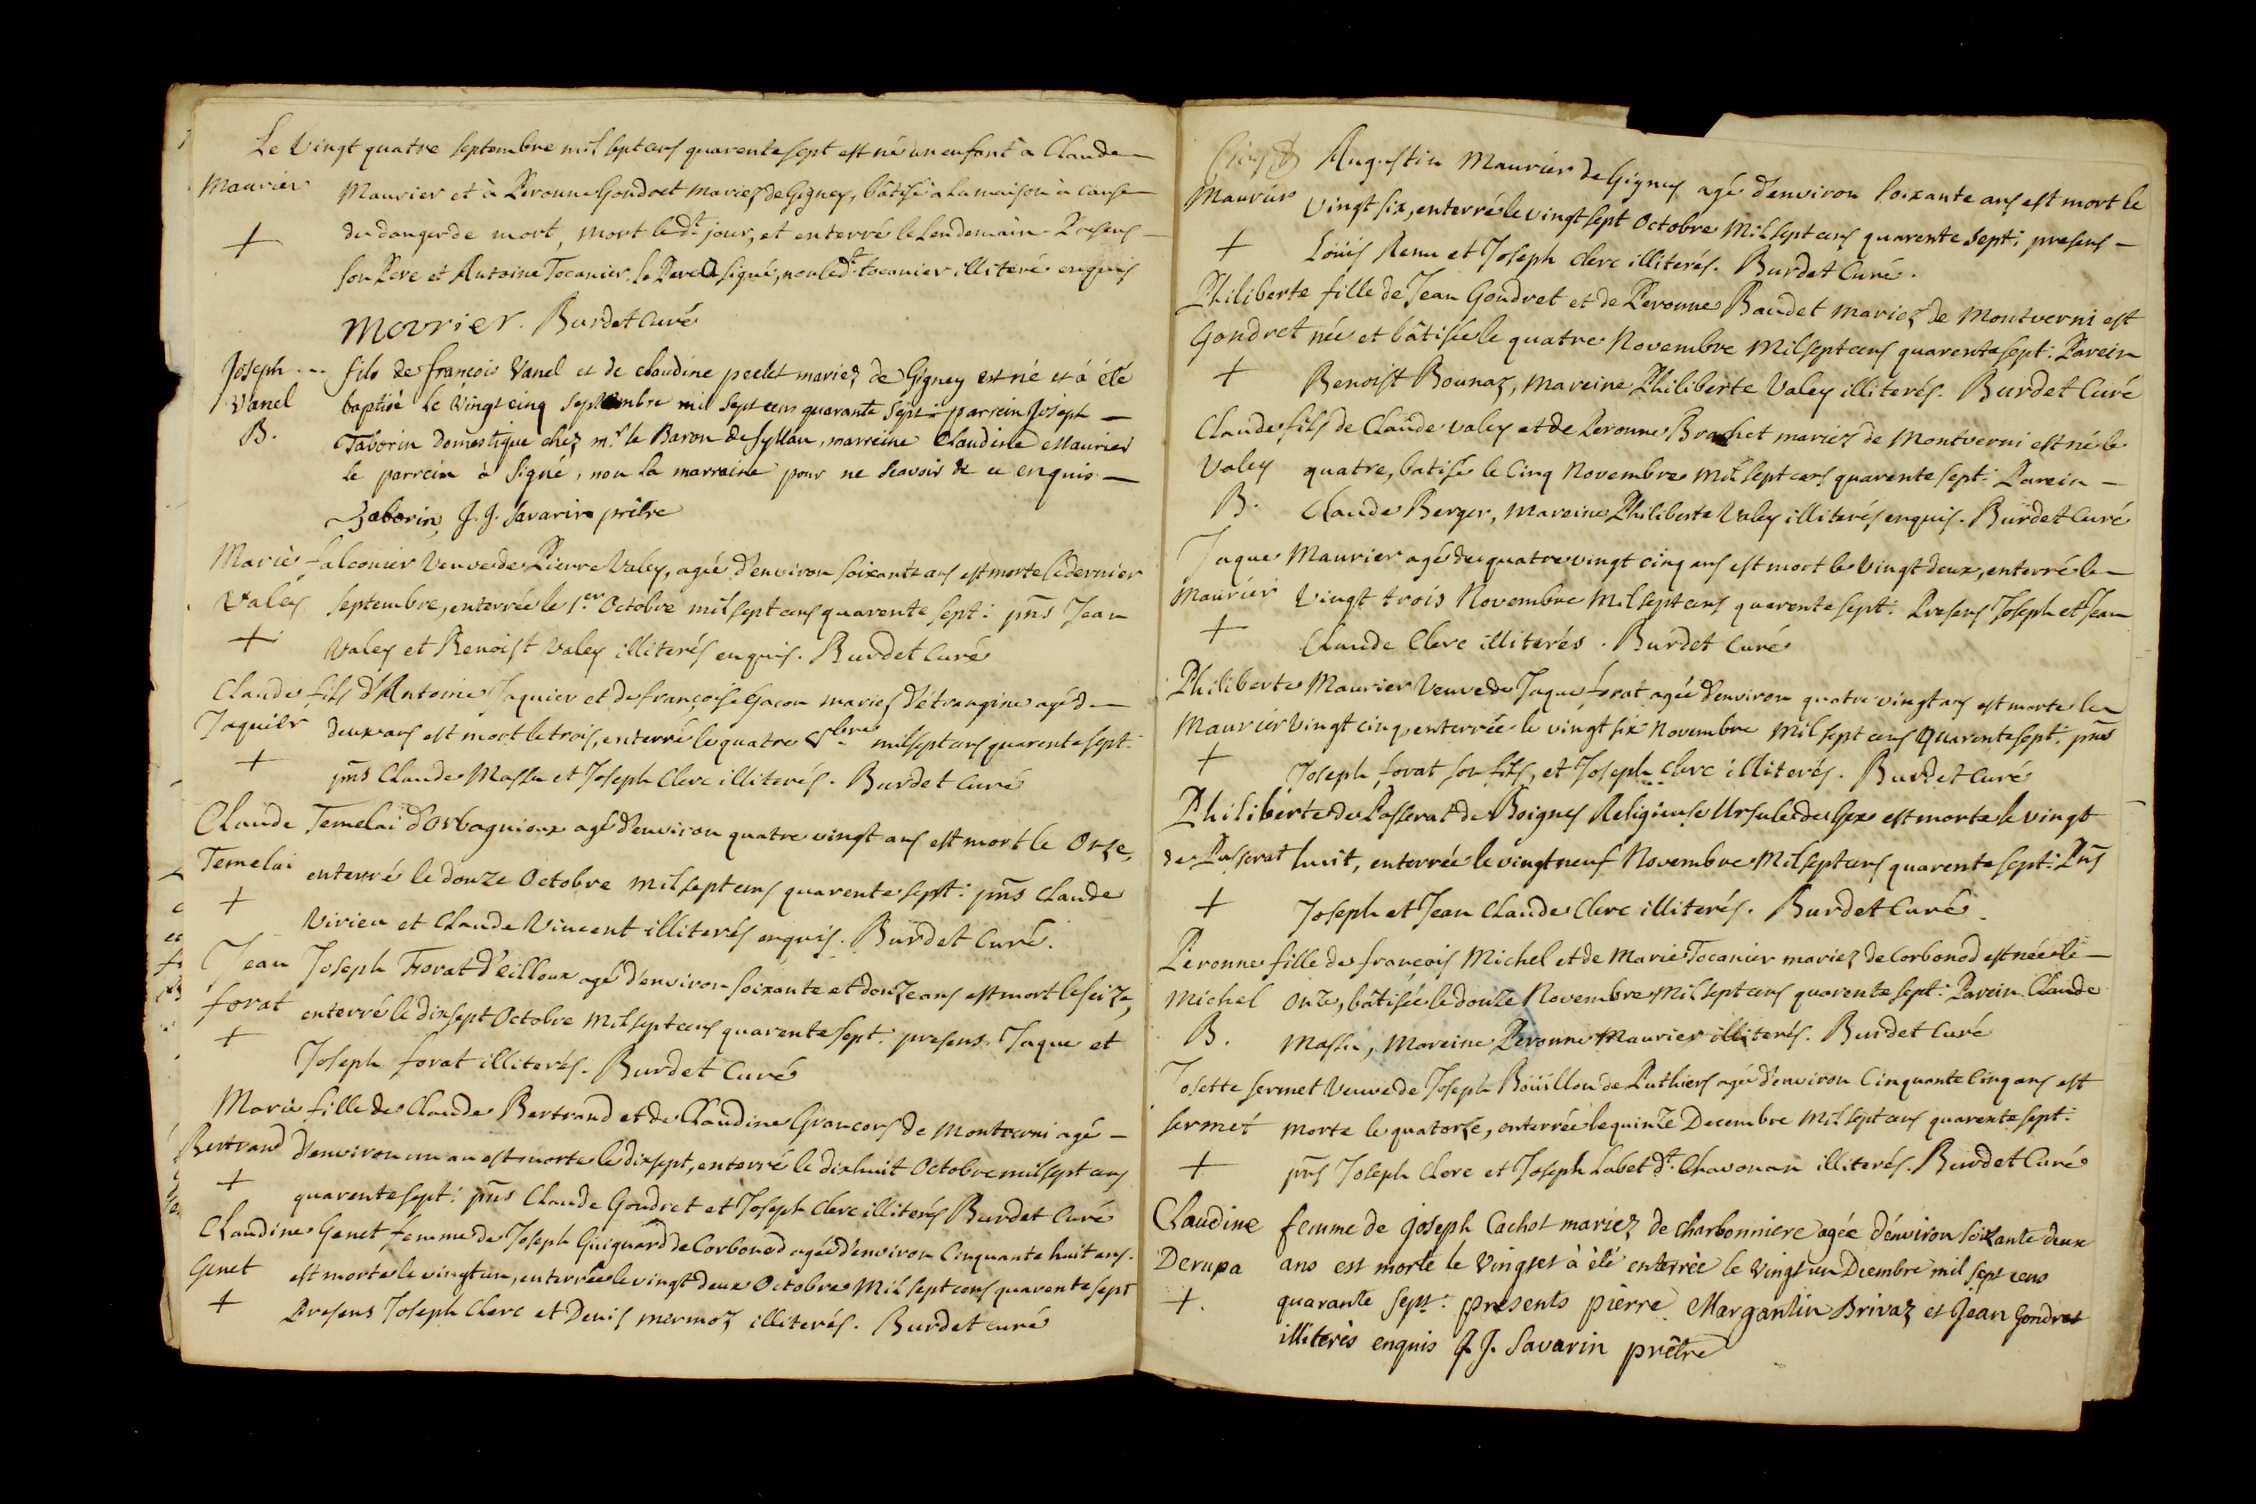 Le Vingt quatre septembre mil sept cens quarente sept est né un enfant à Claude
Maurier Maurier et à Peronne Goudret mariez de Gigney, bâtisé a la maison à cause
+ du danger de mort, mort le dt. jour, et enterré le lendemain. Presens
son Pere et Antoine Tocanier. Le Pere a signé, non le dt. tocanier illiteré enquis
Movrier. Burdet Curé
Joseph fils de francois Vanel et de claudine peclet mariez de Gigney est né et à été
Vanel baptisé le Vingt cinq septembre mil sept cens quarante sept. parrein Joseph
B. Taborin domestique chez mr. le Baron de Syllau, marreine Claudine Maurier
le parrein à signé, non la marraine pour ne scavoir de ce enquis
Taborin, J. J. Savarin prêtre
Marie falconier Veuve de Pierre Valey, agée d'environ soixante ans est morte le dernier
Valey septembre, enterrée le 1er. Octobre mil sept cens quarente sept: pns Jean
+ Valey et Benoist Valey illiterés enquis. Burdet Curé
Claude fils d'Antoine Jaquier et de françoise Gacon mariez d'étrangine agé de
Jaquier deux ans est mort le trois, enterré le quatre 8bre mil sept cens quarente sept:
+ pns Claude Massu et Joseph Clerc illiterés. Burdet Curé
Claude Temelai d'Orbagnioux agé d'environ quatre vingt ans est mort le Onze,
Temelai enterré le douze Octobre mil sept cens quarente sept: pns Claude
+ Vivien et Claude Vincent illiterés enquis. Burdet Curé.
Jean Joseph Forat d'eilloux agé d'environ soixante et douze ans est mort le seize,
forat enterré le dix sept Octobre mil sept cens quarente sept: presens Jaque et
+ Joseph forat illiterés. Burdet Curé
Marie fille de Claude Bertrand et de Claudine Grancors de Montverni agé
Bertrand d'environ un an est morte le dix sept, enterré le dix huit Octobre mil sept cens
+ quarente sept: pns Claude Goudret et Joseph Clerc illiterés Burdet Curé
Claudine Genet femme de Joseph Guiguard de Corbonod agée d'environ Cinquante huit ans.
Genet est morte le vingt un, enterrée le vingt deux Octobre Mil sept cens quarente sept
+ Presens Joseph Clerc et Denis mermoz illiterés. Burdet curé
Augustin Maurier de Gigney agé d'environ soixante ans est mort le
Maurier vingt six, enterré le vingt sept Octobre Mil sept cens quarente sept: presens
+ Loüis Renu et Joseph Clerc illiterés. Burdet Curé.
Philiberte fille de Jean Goudret et de Peronne Baudet mariez de Montverni est
Gondret née et bâtisée le quatre Novembre Mil sept cens quarente sept: Parein
+ Benoist Bounaz, mareine Philiberte Valey illiterés. Burdet Curé
Claude fils de Claude Valey et de Peronne Brachet mariez de Montverni est né le
Valey quatre, batisé le Cinq Novembre Mil sept cens quarente sept: Parein
B. Claude Berger, Mareine Philiberte Valey illiterés enquis. Burdet Curé
Jaque Maurier agé de quatre vingt cinq ans est mort le Vingt deux, enterré le
Maurier Vingt trois Novembre Mil sept cens quarente sept: Presens Joseph et Jean
+ Claude Clerc illiterés. Burdet Curé
Philiberte Maurier Veuve de Jaque forat agée d'environ quatre vingt ans est morte le
Maurier vingt cinq, enterrée le vingt six Novembre Mil sept cens Quarente sept: pns
+ Joseph forat son fils, et Joseph Clerc illiterés. Burdet Curé
Philiberte de Passerat de Boignes Religieuse Ursule de Gex est morte le vingt
de Passerat huit, enterrée le vingt neuf Novembre Mil sept cens quarente sept: Pns
+ Joseph et Jean Claude Clerc illiterés. Burdet Curé.
Peronne fille de francois Michel et de Marie Tocanier mariez de Corbonod est née le
Michel Onze, bâtisée le douze Novembre Mil sept cens quarente sept: Parein Claude
B. Massu, Mareine Peronne Maurier illiterés. Burdet Curé
Josette Sermet Veuve de Joseph Boüillon de Puthiers agée d'environ Cinquante Cinq ans est
Sermet Morte le quatorze, enterrée le quinze Decembre Mil sept cens quarente sept:
+ pns Joseph Clerc et Joseph Labet dt. Chavouan illiterés. Burdet Curé
Claudine femme de joseph Cachot mariez de charbonniere agée d'environ soixante deux
Derupa ans est morte le Vingt et à été enterrée le Vingt un Decembre mil sept cens
+. quarante sept: presents pierre Margantin Brivaz et Jean Gondret
illiterés enquis J. J. Savarin prêtre